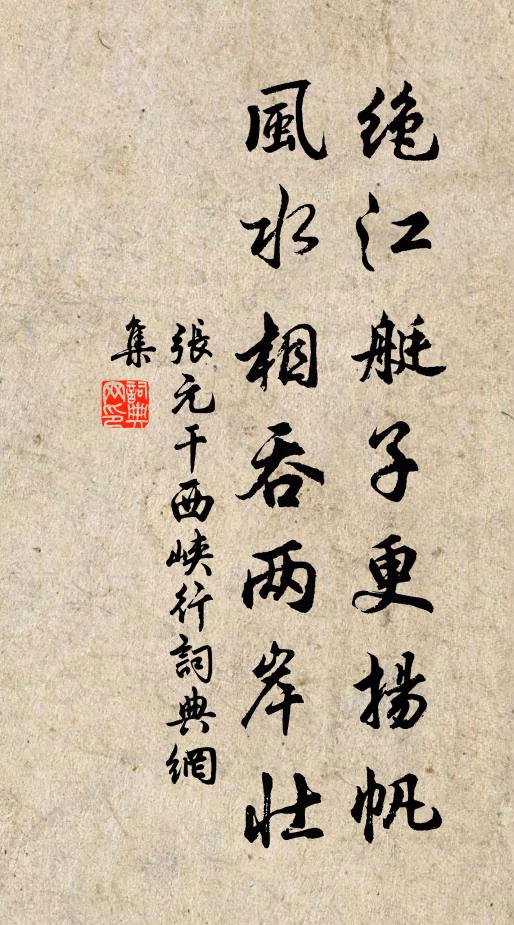 绝江艇子更揚帆
風水相吞两岸壮
張元干西峡行詞典網
集
詞典
网印